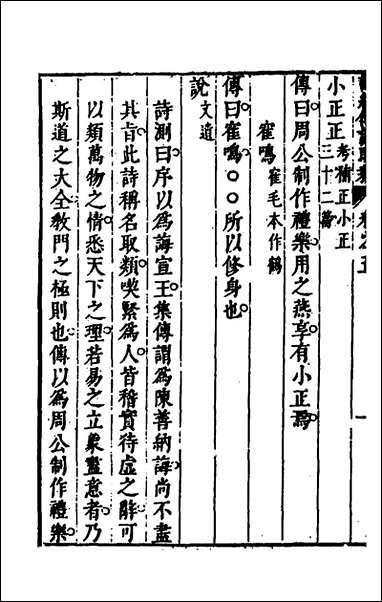 卷之五
一
小正正 考補正小正三十二篇
傳曰周公制作禮樂用之燕享有小正焉
寉鳴 寉毛本作鶴
傳曰寉鳴○○所以修身也
說 文遺
詩測曰序以爲誨宣王集傳謂爲陳善納誨尚不盡
其旨此詩稱名取類喫緊爲人皆稽實待虛之辭可
以類萬物之情悉天下之理若易之立象盡意者乃
斯道之大全敎門之極則也傳以爲周公制作禮樂